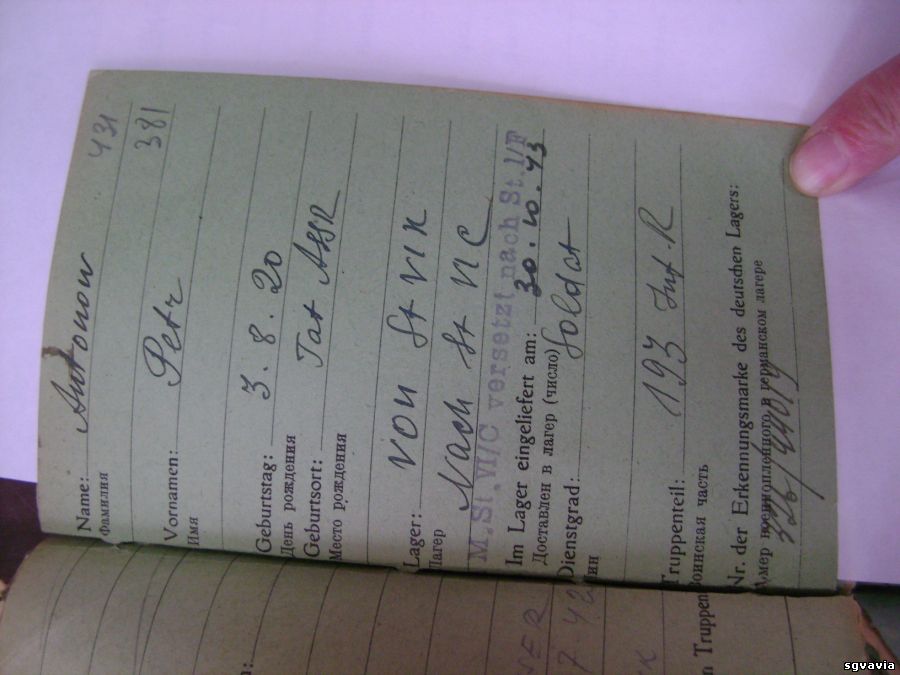 431
Name: Antonow
Фамилия
381
Vornamen: Petr
Имя
Geburtstag: 3. 8. 20
День рождения
Geburtsort: Tat ASSR
Место рождения
Lager: von St VI K
Лагер
Nach St VI C
M.St.VI/C versetzt nach St.I/F
Im Lager eingeliefert am: 30. 10. 43
Доставлен в лагер (число)
Dienstgrad: Soldat
ин
Truppenteil: 193 Inf. R
Воинская часть
Nr. der Erkennungsmarke des deutschen Lagers:
мер военнопленного в германском лагере
326/
n Truppen
7 42
sgvavia